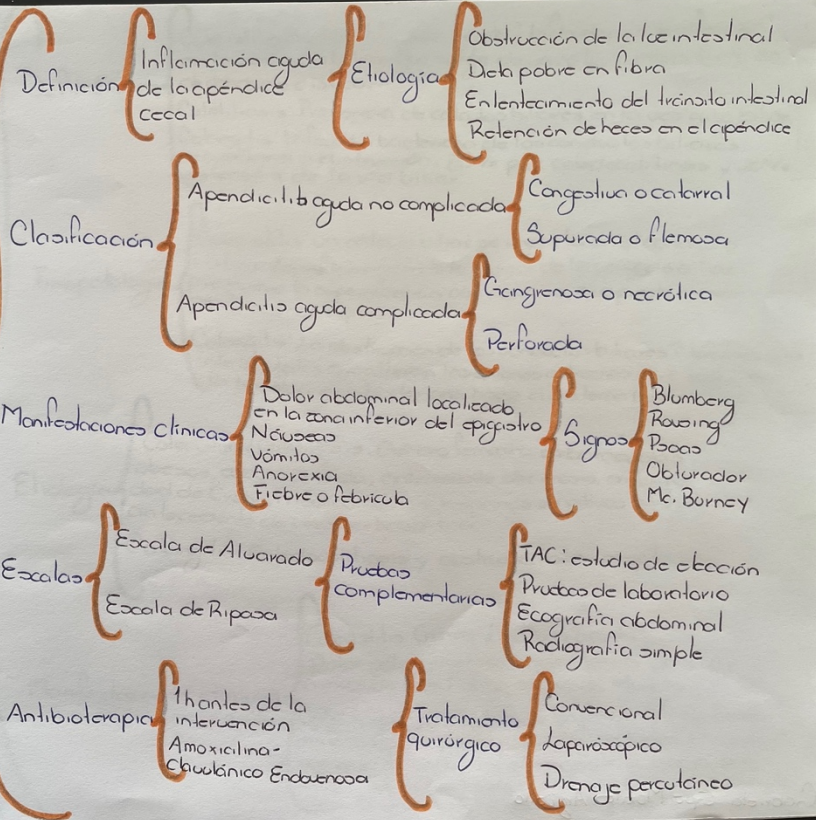 Definición
Inflamación aguda
de la apéndice
cecal
Etiología
Obstrucción de la luz intestinal
Dieta pobre en fibra
Enlentecimiento del tránsito intestinal
Retención de heces en el apéndice
Clasificación
Apendicitis aguda no complicada
Congestiva o catarral
Supurada o flemosa
Apendicitis aguda complicada
Gangrenosa o necrótica
Perforada
Manifestaciones clínicas
Dolor abdominal localizado
en la zona inferior del epigastro
Náuseas
Vómitos
Anorexia
Fiebre o febricula
Signos
Blumberg
Rovsing
Psoas
Obturador
Mc. Burney
Escalas
Escala de Alvarado
Escala de Ripasa
Pruebas
complementarias
TAC: estudio de elección
Pruebas de laboratorio
Ecografía abdominal
Radiografía simple
Antibioterapia
1h antes de la
intervención
Amoxicilina-
Clavulánico Endovenosa
Tratamiento
quirúrgico
Convencional
Laparóscópico
Drenaje percutáneo